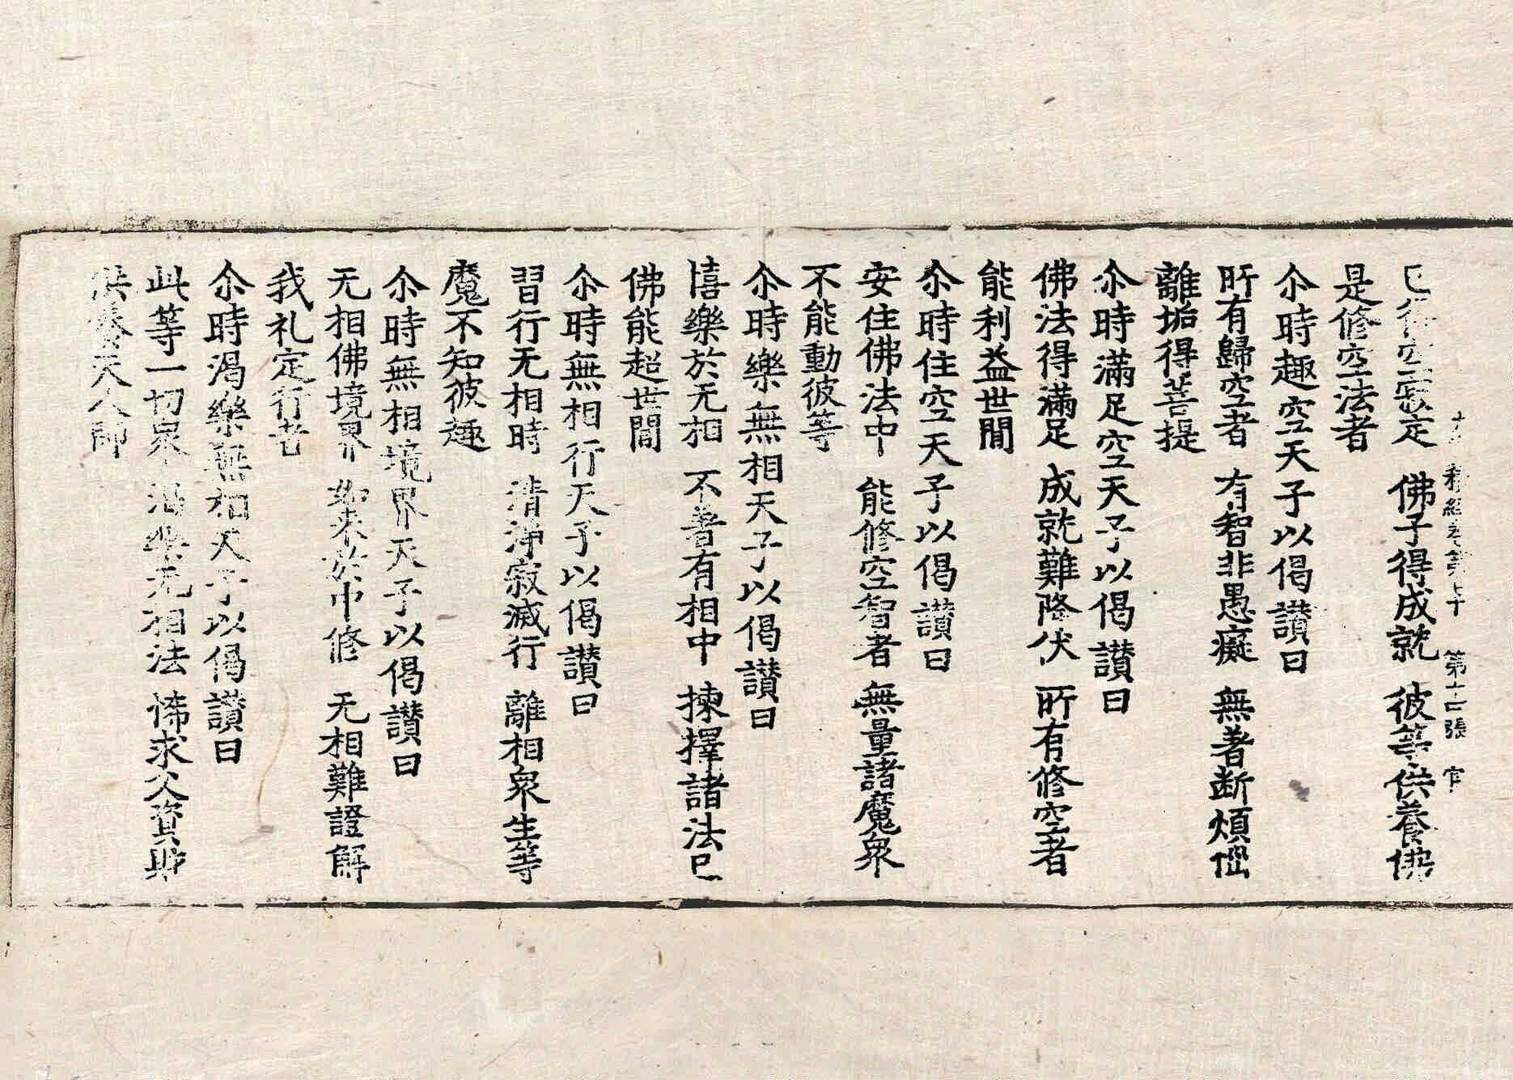 大寶積經卷第七十 第十四張 官
已得空寂定 佛子得成就 彼等供養佛
是修空法者
尒時趣空天子以偈讃曰
所有歸空者 有智非愚癡 無著断煩惱
離垢得菩提
尒時滿足空天子以偈讃曰
佛法得滿足 成就難降伏 所有修空者
能利益世間
尒時住空天子以偈讃曰
安住佛法中 能修空智者 無量諸魔衆
不能動彼等
尒時樂無相天子以偈讃曰
憘樂於无相 不著有相中 揀擇諸法已
佛能超世間
尒時無相行天子以偈讃曰
習行无相時 清淨寂滅行 離相衆生等
魔不知彼趣
尒時無相境界天子以偈讃曰
无相佛境界 如來於中修 无相難證解
我礼定行者
尒時渴樂無相天子以偈讃曰
此等一切衆 渴樂无相法 悕求父資財
供養天人師